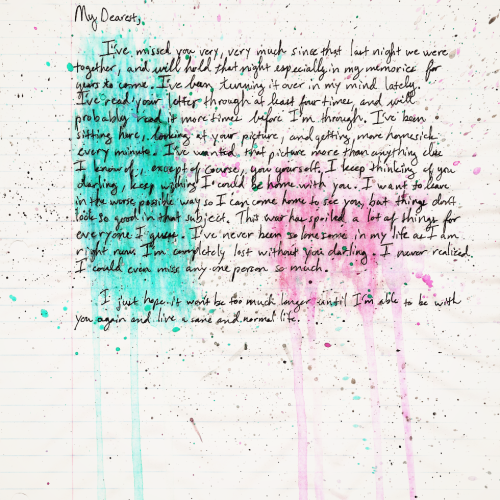 My Dearest,
I've missed you very, very much since that last night we were
together, and will hold that night especially in my memories for
years to come. I've been turning it over in my mind lately.
I've read your letter through at least four times, and will
probably read it more times before I'm through. I've been
sitting here, looking at your picture, and getting more homesick
every minute. I've wanted that picture more than anything else
I know of, except of course, you yourself. I keep thinking of you
darling, keep wishing I could be home with you. I want to leave
in the worse possible way so I can come home to see you, but things don't
look so good in that subject. This war has spoiled a lot of things for
everyone I guess. I've never been so lonesome in my life as I am
right now. I'm completely lost without you darling. I never realized
I could even miss any one person so much.
I just hope it won't be too much longer until I'm able to be with
you again and live a sane and normal life.